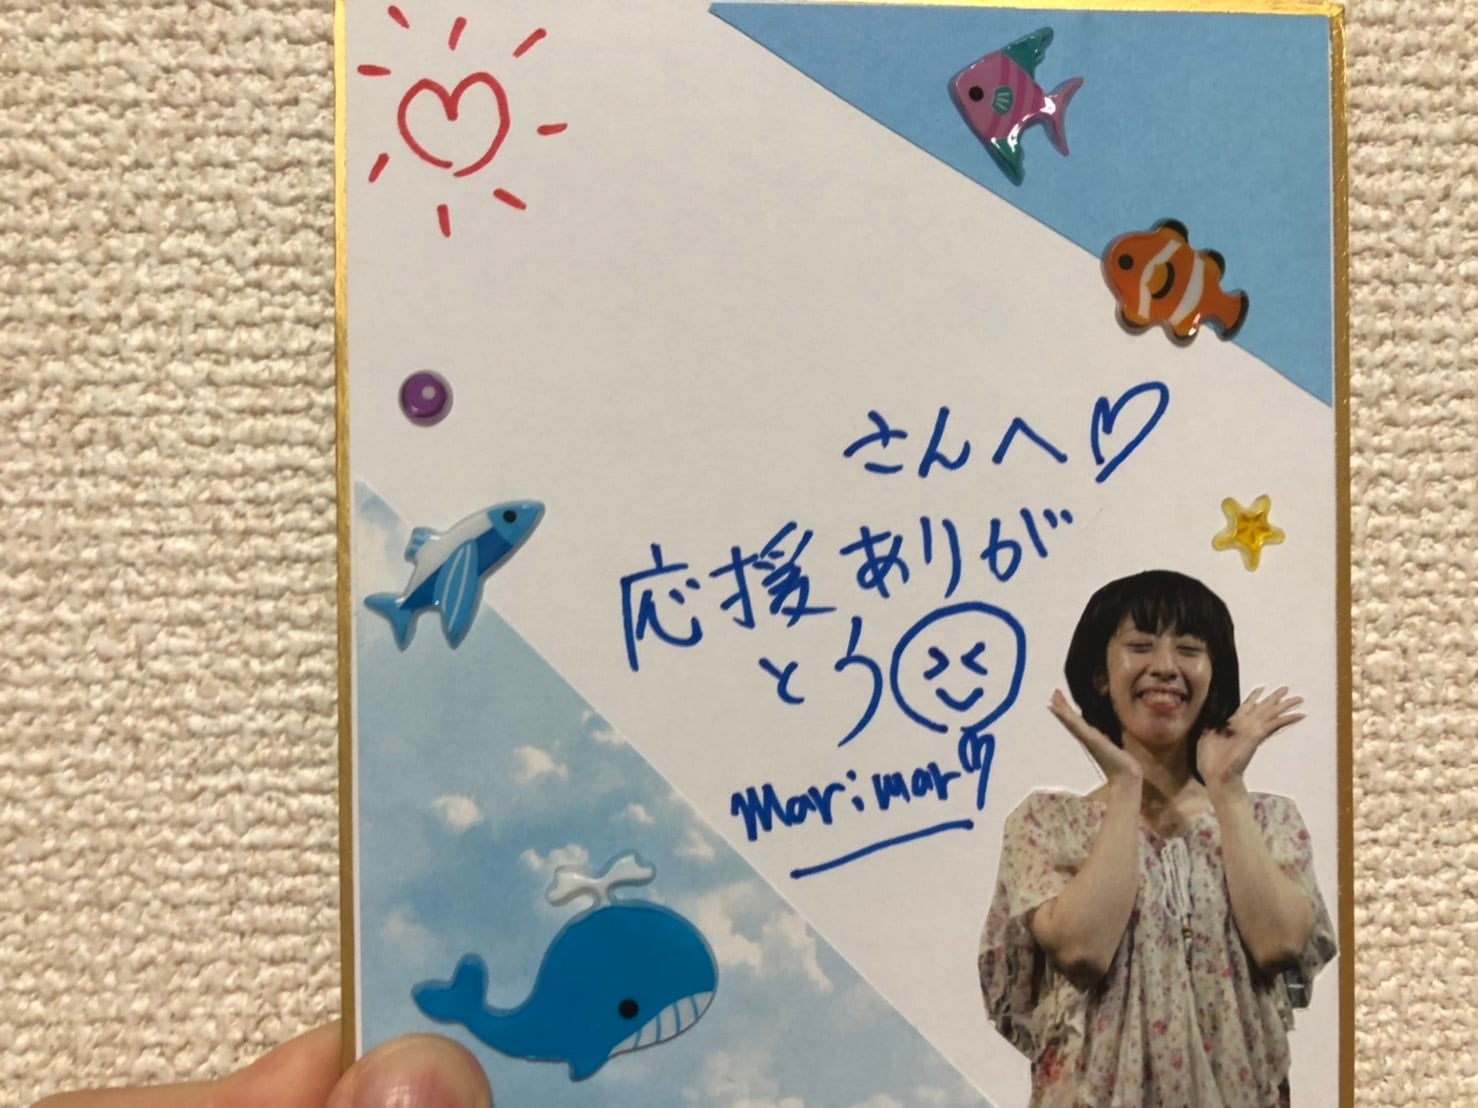 さんへ♡
応援ありが
とう
marimar